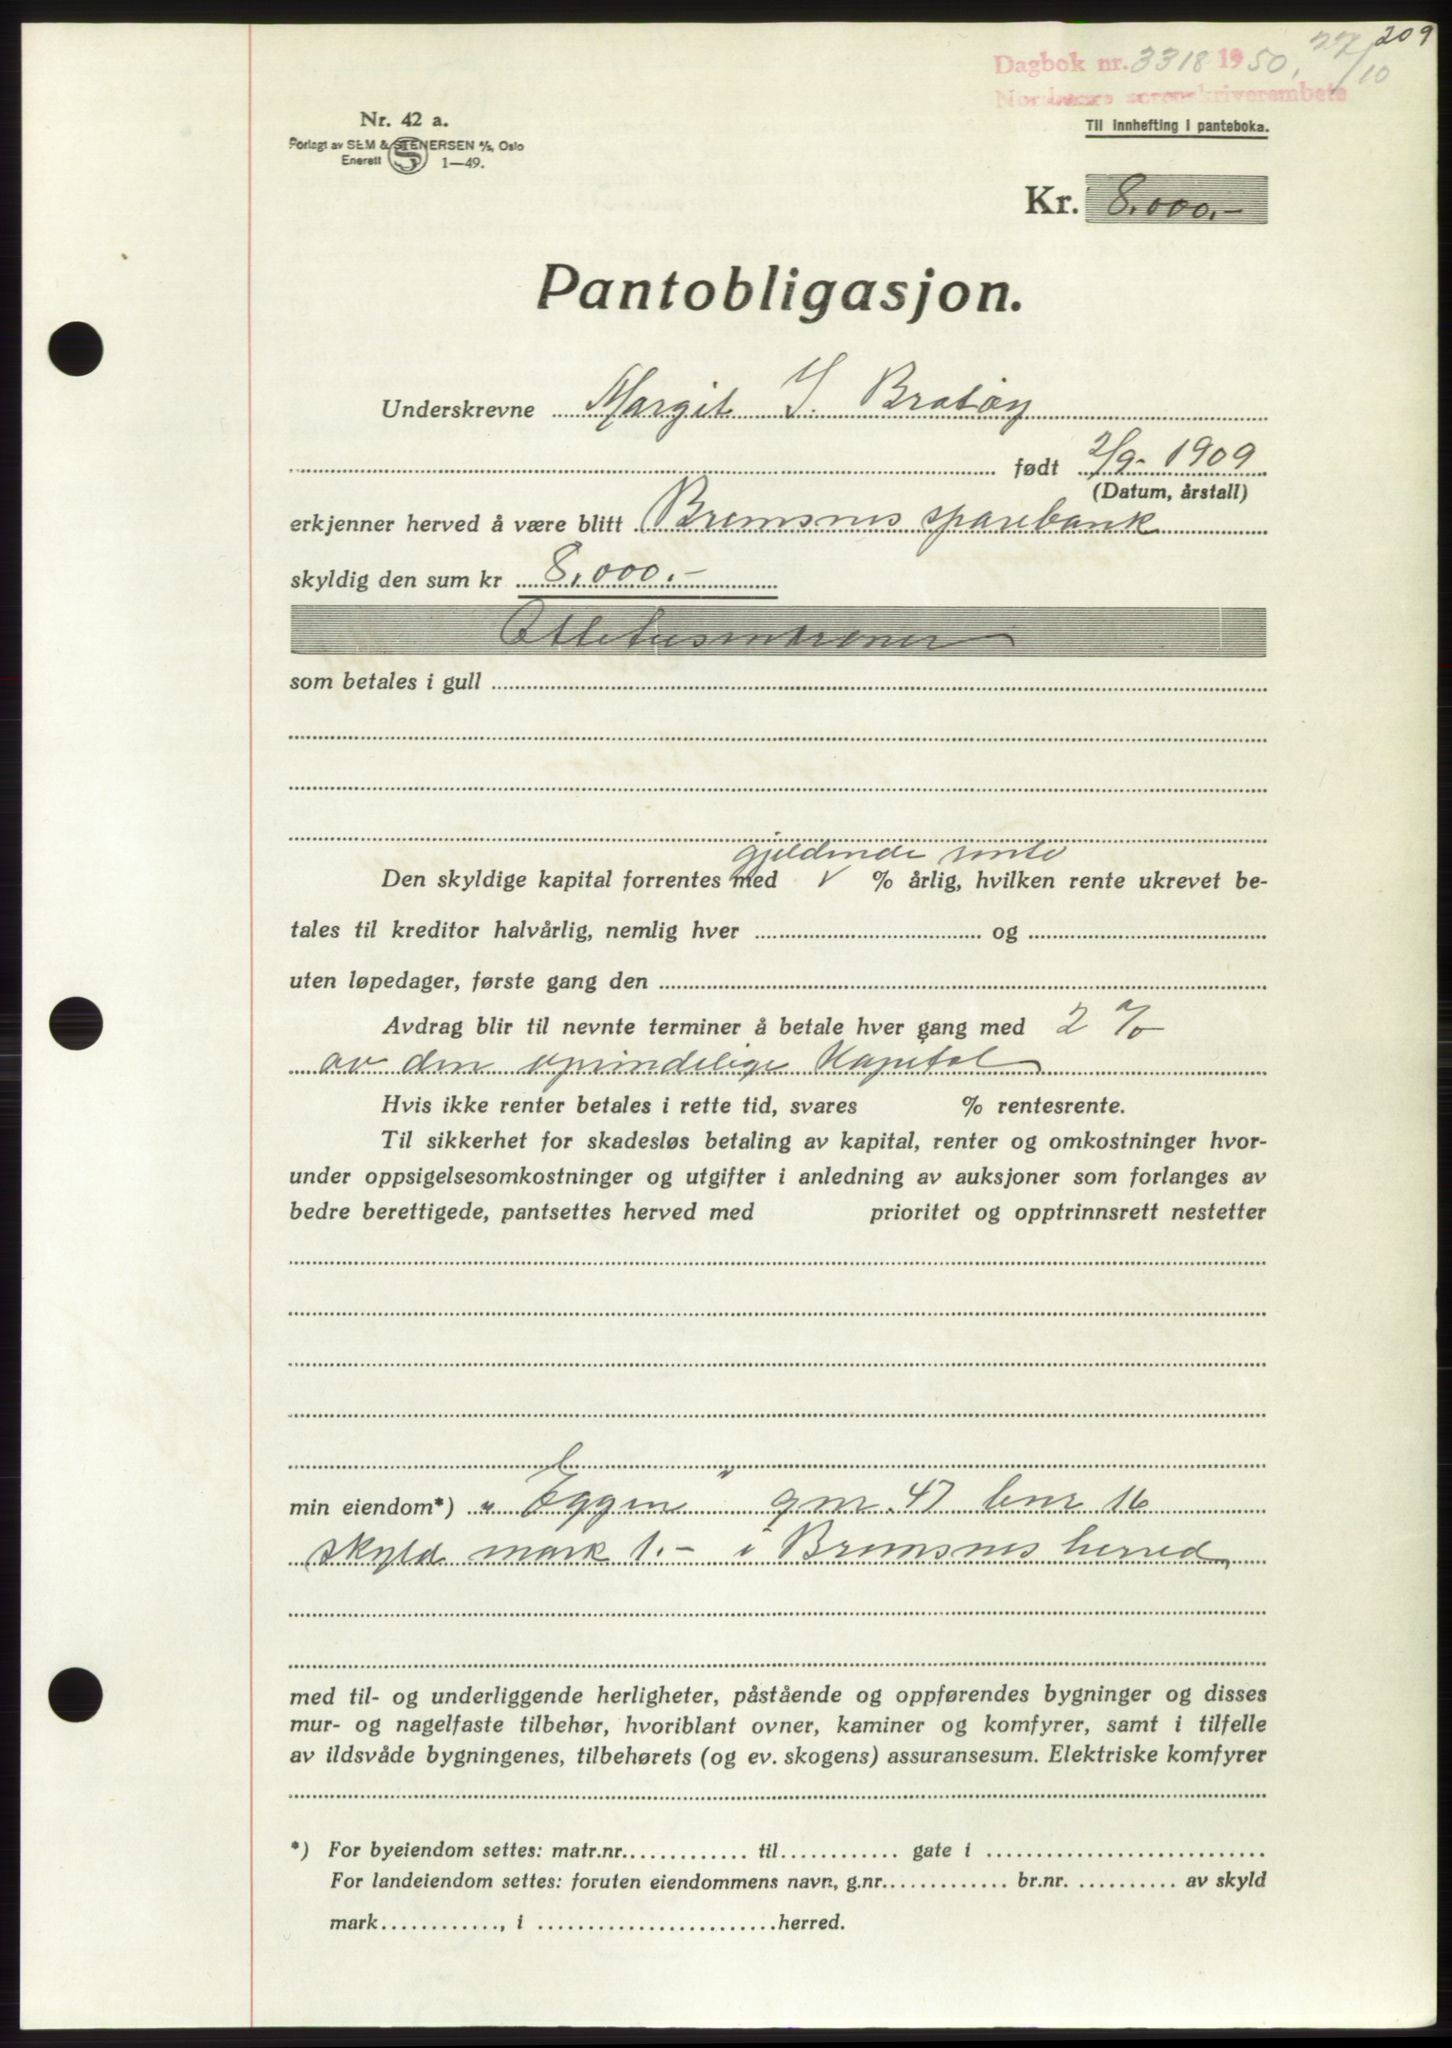 209
Dagbok nr. 3318 1950, 27/10
Nordmøre sorenskriverembete
Til innhefting i panteboka.
Nr. 42 a.
Forlagt av SEM & STENERSEN A/S, Oslo
Enerett S 1—49.
Kr. 8.000.-
Pantobligasjon.
Underskrevne Margit I. Bratøy
født 2/9- 1909
(Datum, årstall)
erkjenner herved å være blitt Bremsnes sparebank
skyldig den sum kr 8.000.-
Ottetusenkroner
som betales i gull
gjeldende rente
Den skyldige kapital forrentes med √ % årlig, hvilken rente ukrevet be-
tales til kreditor halvårlig, nemlig hver og
uten løpedager, første gang den
Avdrag blir til nevnte terminer å betale hver gang med 2 %
av den oprindelige Kapital
Hvis ikke renter betales i rette tid, svares % rentesrente.
Til sikkerhet for skadesløs betaling av kapital, renter og omkostninger hvor-
under oppsigelsesomkostninger og utgifter i anledning av auksjoner som forlanges av
bedre berettigede, pantsettes herved med prioritet og opptrinnsrett nestetter
min eiendom*) „Eggen" gnr. 47 bnr 16
skyld mark 1.- i Bremsnes herred,
med til- og underliggende herligheter, påstående og oppførendes bygninger og disses
mur- og nagelfaste tilbehør, hvoriblant ovner, kaminer og komfyrer, samt i tilfelle
av ildsvåde bygningenes, tilbehørets (og ev. skogens) assuransesum. Elektriske komfyrer
*) For byeiendom settes: matr.nr. til gate i
For landeiendom settes: foruten eiendommens navn, g.nr. br.nr. av skyld
mark , i herred.